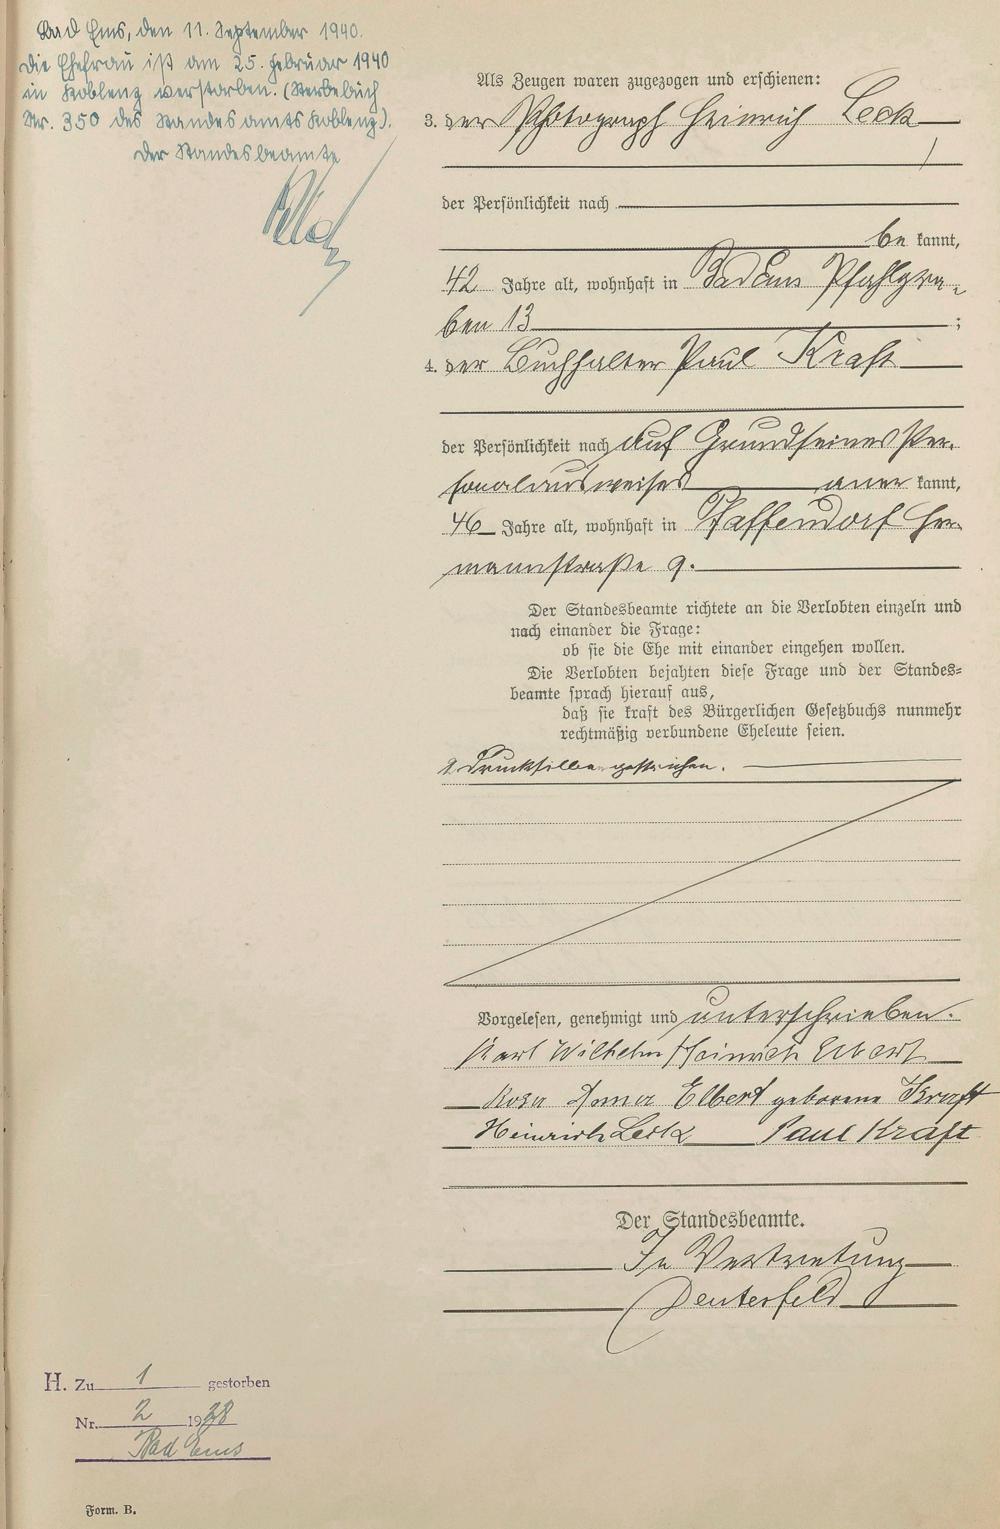 Bad Ems, den 11. September 1940.
Die Ehefrau ist am 25. Februar 1940
in Koblenz verstorben. (Sterbebuch
Nr. 350 des Standesamts Koblenz).
Der Standesbeamte
Als Zeugen waren zugezogen und erschienen:
3. der Photograph Heinrich Leck
der Persönlichkeit nach
be kannt,
42 Jahre alt, wohnhaft in Bad Ems Pfahlgra-
ben 13 ;
4. der Buchhalter Paul Kraft
der Persönlichkeit nach auf Grund seines Per-
sonalausweises aner kannt,
46 Jahre alt, wohnhaft in Pfaffendorf Her-
mannstraße 9.
Der Standesbeamte richtete an die Verlobten einzeln und
nach einander die Frage:
ob sie die Ehe mit einander eingehen wollen.
Die Verlobten bejahten diese Frage und der Standes=
beamte sprach hierauf aus,
daß sie kraft des Bürgerlichen Gesetzbuchs nunmehr
rechtmäßig verbundene Eheleute seien.
2 Drucksilben gestrichen.
Vorgelesen, genehmigt und unterschrieben.
Karl Wilhelm Heinrich Elbert
Rosa Anna Elbert geborene Kraft
Heinrich Leck Paul Kraft
Der Standesbeamte.
In Vertretung
Deuterfeld
H. Zu 1 gestorben
Nr. 2 1928
Bad Ems
Form. B.